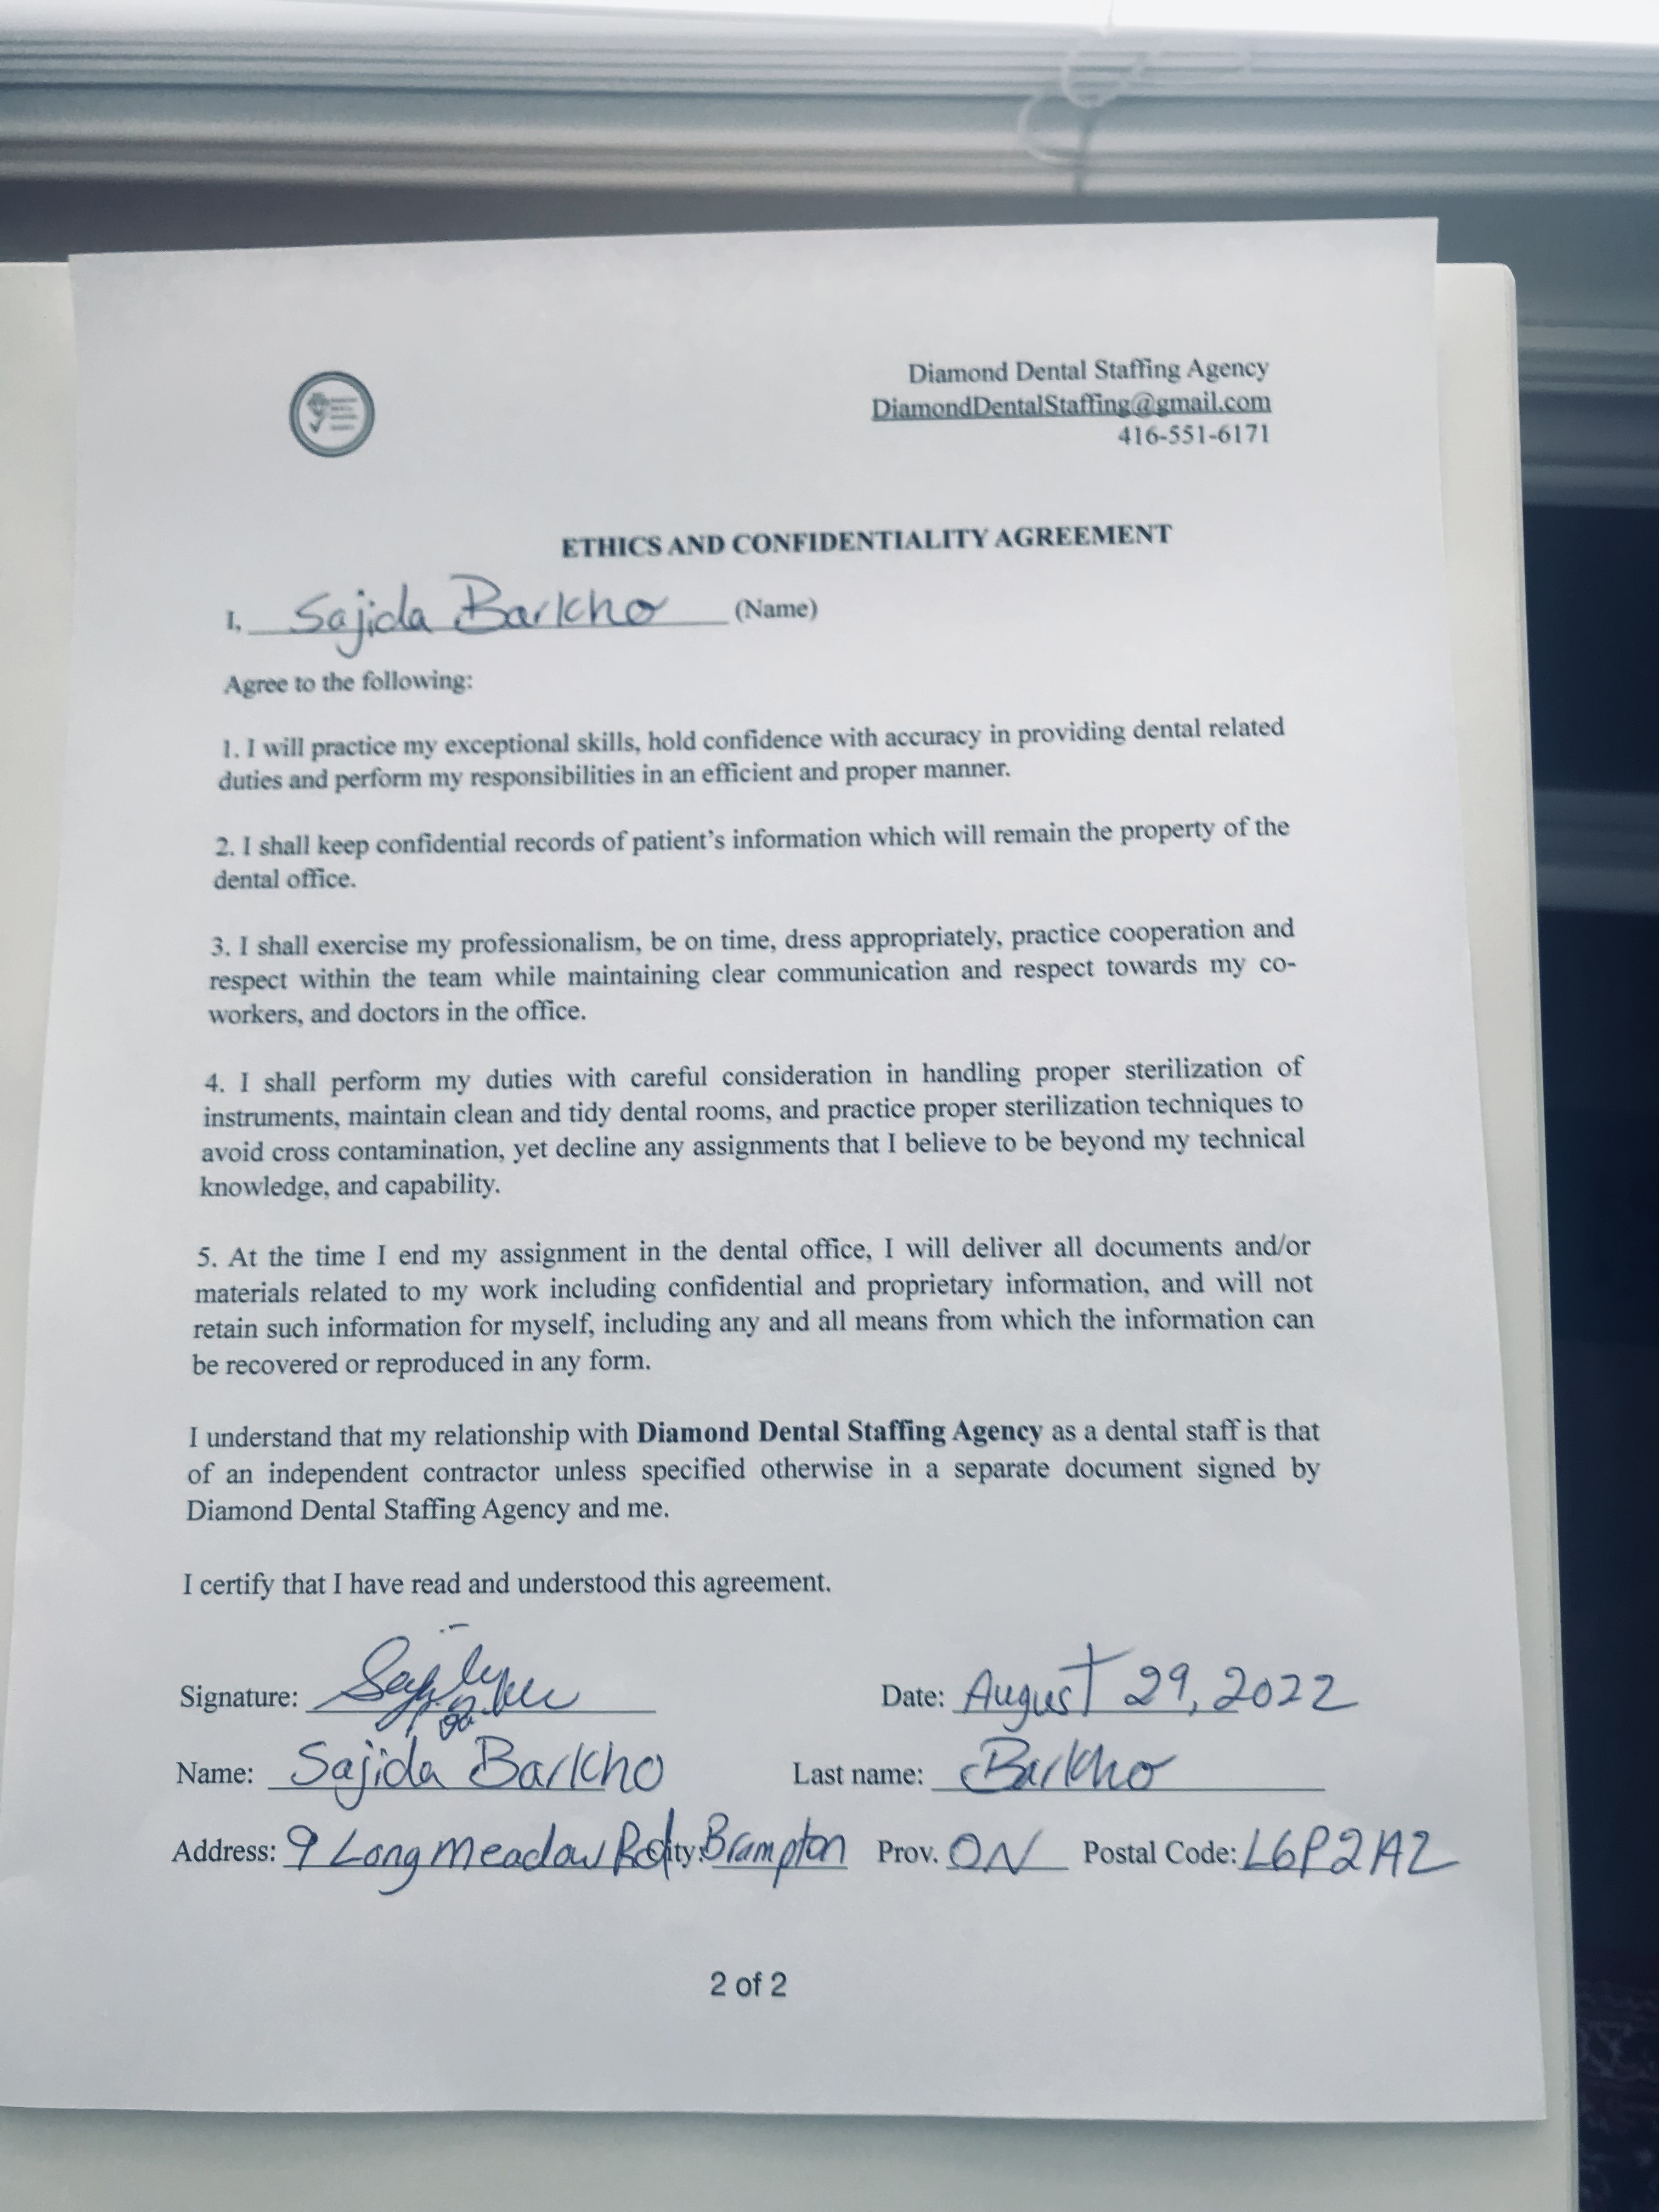 Diamond Dental Staffing Agency
DiamondDentalStaffing@gmail.com
416-551-6171
ETHICS AND CONFIDENTIALITY AGREEMENT
I, Sajida Barkho (Name)
Agree to the following:
1. I will practice my exceptional skills, hold confidence with accuracy in providing dental related
duties and perform my responsibilities in an efficient and proper manner.
2. I shall keep confidential records of patient's information which will remain the property of the
dental office.
3. I shall exercise my professionalism, be on time, dress appropriately, practice cooperation and
respect within the team while maintaining clear communication and respect towards my co-
workers, and doctors in the office.
4. I shall perform my duties with careful consideration in handling proper sterilization of
instruments, maintain clean and tidy dental rooms, and practice proper sterilization techniques to
avoid cross contamination, yet decline any assignments that I believe to be beyond my technical
knowledge, and capability.
5. At the time I end my assignment in the dental office, I will deliver all documents and/or
materials related to my work including confidential and proprietary information, and will not
retain such information for myself, including any and all means from which the information can
be recovered or reproduced in any form.
I understand that my relationship with Diamond Dental Staffing Agency as a dental staff is that
of an independent contractor unless specified otherwise in a separate document signed by
Diamond Dental Staffing Agency and me.
I certify that I have read and understood this agreement.
Signature: Date: August 29, 2022
Name: Sajida Barkho Last name: Barkho
Address: 9 Long Meadow Rd City: Brampton Prov. ON Postal Code: L6P2A2
2 of 2